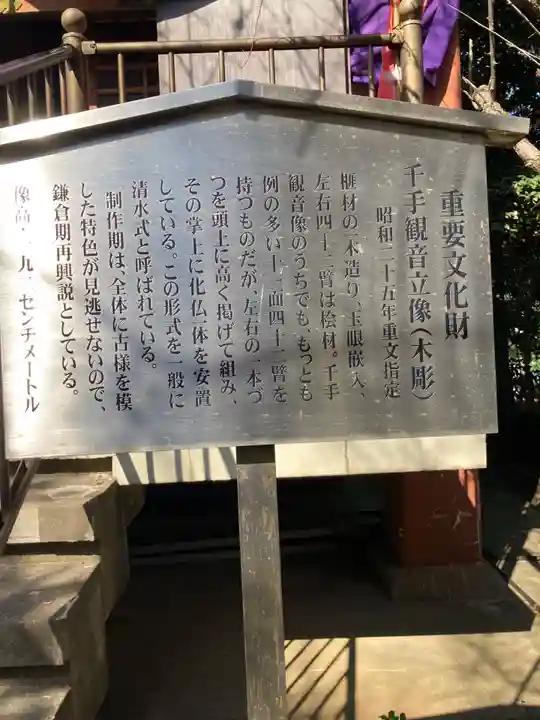 重要文化財
千手観音立像(木彫)
昭和二十五年重文指定
榧材の一木造り、玉眼嵌入、
左右四十二臂は桧材。千手
観音像のうちでも、もっとも
例の多い十一面四十二臂を
持つものだが、左右の一本づ
つを頭上に高く掲げて組み、
その掌上に化仏一体を安置
している。この形式を一般に
清水式と呼ばれている。
制作期は、全体に古様を模
した特色が見逃せないので、
鎌倉期再興説としている。
像高一九一センチメートル